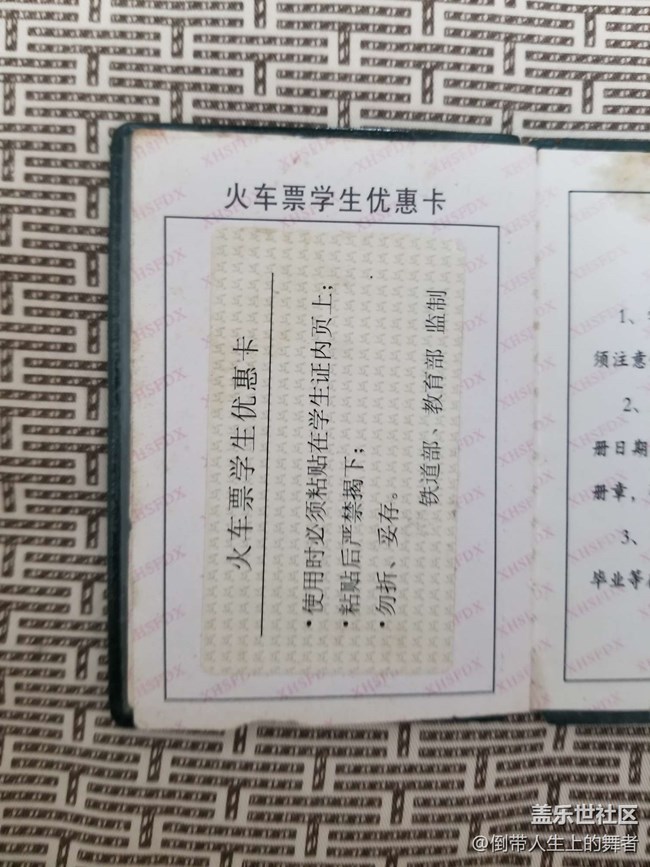 火车票学生优惠卡
火车票学生优惠卡
·使用时必须粘贴在学生证内页上;
·粘贴后严禁揭下;
·勿折、妥存。
铁道部、教育部 监制
1、
须注意
2、
日期
章,
3、
毕业等
XHSFDX
盖乐世社区
@倒带人生上的舞者